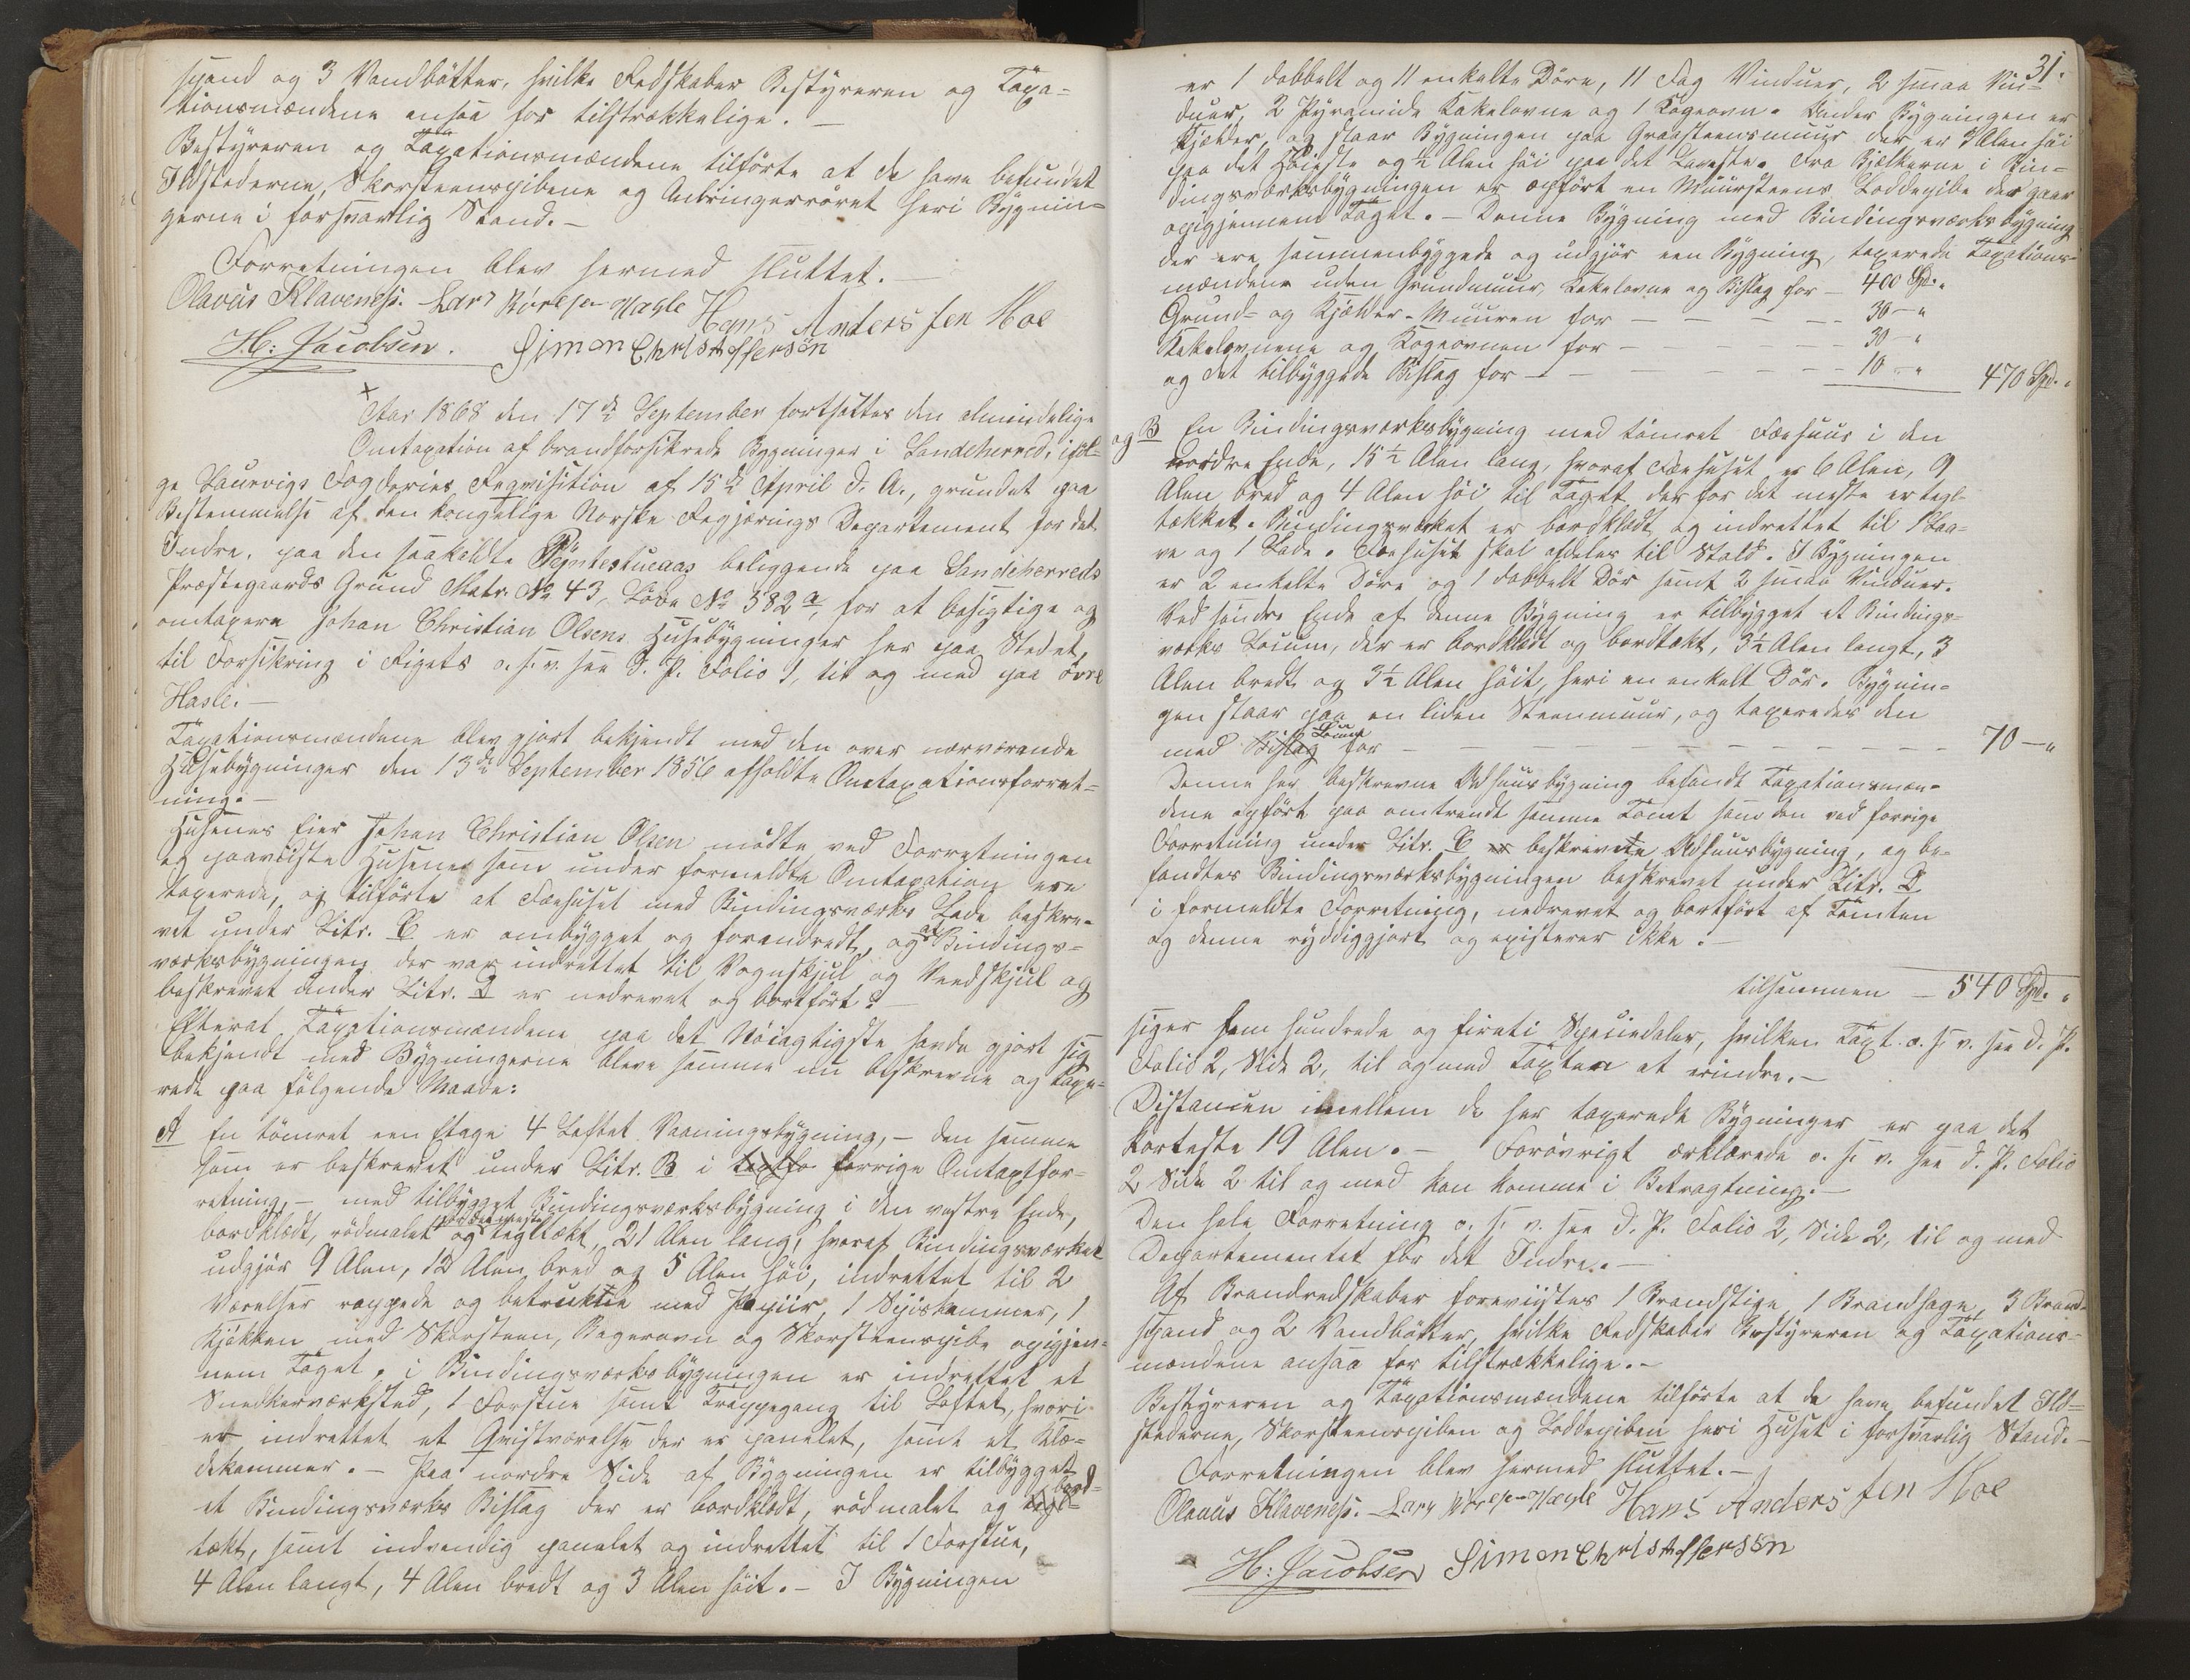 spand og 3 Vandbøtter, hvilke Redskaber Bestyreren og Taxa-
tionsmændene ansaa for tilstrækkelige. —
Bestyreren og Taxationsmændene tilførte at de have befundet
Ildstederne, Skorsteenspiberne og Anbringerrøret heri Bygnin-
gerne i forsvarlig Stand. —
Forretningen blev hermed sluttet. —
Olavus Klaveness. Lars Hans Anderssen Moe
H: Jacobsen. Simon Christoffersön
Aar 1868 den 17de September fortsattes den almindelige
Omtaxation af brandforsikrede Bygninger i Sandeherred, iføl-
ge Laurvigs Fogderies Reqvisition af 15de April d. A., grundet paa
Bestemmelse af den kongelige Norske Regjerings Departement for det
Indre, paa den saakaldte beliggende paa Sandeherreds
Præstegaards Grund Matr. No 43, Løbe No 382 a, for at besigtige og
omtaxere Johan Christian Olsens Huusebygninger her paa Stedet,
til Forsikring i Rigets o. s. v. see d. P. Folio 1, til og med paa øvre
Hasle. —
Taxationsmændene blev gjort bekjendt med den over nærværende
Huusebygninger den 13de September 1856 afholdte Omtaxationsforret-
ning. —
Husenes Eier Johan Christian Olsen mødte ved Forretningen
og paaviiste Husene som under formeldte Omtaxation ere
taxerede, og tilførte at Fæehuset med Bindingsværks Lade beskre-
vet under Litr. C er ombygget og forandredt, og at Bindings-
værksbygningen der var indrettet til Vognskjul og Veedskjul og
beskrevet under Litr. D er nedrevet og bortført. —
Efterat Taxationsmændene paa det Nøiagtigste havde gjort sig
bekjendt med Bygningerne bleve samme nu beskrevne og taxe-
rede paa følgende Maade:
A En tømret een Etage 4 Loftet Vaaningsbygning, — den samme
som er beskrevet under Litr. B i forrige Omtaxtfor-
retning, — med tilbygget Bindingsværksbygning i den vestre Ende,
bordklædt, rødmalet og for det meste tegltækt, 21 Alen lang, hvoraf Bindingsværket
udgjør 9 Alen, 12 Alen bred og 5 Alen høi, indrettet til 2
Værelser rappede og betrukne med Papiir, 1 Spiiskammer, 1
Kjøkken med Skorsteen, Bagerovn og Skorsteenspibe opigjen-
nem Taget, i Bindingsværksbygningen er indrettet et
Snedkerværksted, 1 Forstue samt Trappegang til Loftet, hvori
er indrettet et Qvistværelse der er panelet, samt et Klæ-
dekammer. — Paa nordre Side af Bygningen er tilbygget
et Bindingsværks Bislag der er bordklædt, rødmalet og bord-
tækt, samt indvendig panelet og indrettet til 1 Forstue,
4 Alen langt, 4 Alen bredt og 3 Alen høit. — I Bygningen
31.
er 1 dobbelt og 11 enkelte Døre, 11 Fag Vinduer, 2 smaa Vin-
duer, 2 Pyramide Kakelovne og 1 Kogeovn. Under Bygningen er
Kjelder, og staar Bygningen paa Graasteensmuur der er 3 Alen høi
paa det Høieste og ½ Alen høi paa det Laveste. Fra Bjelkerne i Bin-
dingsværksbygningen er opført en Muursteens Loddepibe der gaar
opigjennem Taget. — Denne Bygning med Bindingsværksbygning
der ere sammenbyggede og udgjør een Bygning, taxerede Taxations-
mændene uden Grundmuur, Kakelovne og Bislag for — 400 Spd. "
Grund- og Kjelder-Muuren for — — — — 30 — "
Kakelovnene og Kogeovnen for — — — — 30 — "
og det tilbyggede Bislag for — — — — — 10 — " 470 Spd. "
og B En Bindingsværksbygning med tømret Fæehuus i den
nordre Ende, 15½ Alen lang, hvoraf Fæehuset er 6 Alen, 9
Alen bred og 4 Alen høi til Taget der for det meste er tegl-
tækket. Bindingsværket er bordklædt og indrettet til 1 Laa-
ve og 1 Lade. Fæehuset skal afdeles til Stald. I Bygningen
er 2 enkelte Døre og 1 dobbelt Dør samt 2 smaa Vinduer.
Ved søndre Ende af denne Bygning er tilbygget et Bindings-
værks Locum, der er bordklædt og bordtækt, 3½ Alen langt, 3
Alen bredt og 3½ Alen høit, heri en enkelt Dør. Bygnin-
gen staar paa en liden Steenmuur, og taxeredes den
med Bislag Locum for — — — — — — — 70 — "
Denne her beskrevne Udhuusbygning befandt Taxationsmæn-
dene opført paa omtrendt samme Tomt som den ved forrige
Forretning under Litr. C beskrevne Udhuusbygning, og be-
fandtes Bindingsværksbygningen beskrevet under Litr. D
i formeldte Forretning, nedrevet og bortført af Tomten
og denne ryddiggjort og existerer ikke. —
tilsammen — 540 Spd. "
siger fem hundrede og firti Speciedaler, hvilken Taxt o. s. v. see d. P.
Folio 2, Side 2, til og med Taxten at erindre. —
Distancen imellem de her taxerede Bygninger er paa det
korteste 19 Alen. — Forøvrigt erklærede o. s. v. see d. P. Folio
2 Side 2 til og med kan komme i Betragtning. —
Den hele Forretning o. s. v. see d. P. Folio 2, Side 2, til og med
Departementet for det Indre. —
Af Brandredskaber foreviistes 1 Brandstige, 1 Brandhage, 3 Brand-
spand og 2 Vandbøtter, hvilke Redskaber Bestyreren og Taxations-
mændene ansaa for tilstrækkelige. —
Bestyreren og Taxationsmændene tilførte at de have befundet Ild-
stederne, Skorsteenspiben og Loddepiben heri Huset i forsvarlig Stand. —
Forretningen blev hermed sluttet. —
Olavus Klaveness. Lars Hans Anderssen Moe
H: Jacobsen Simon Christoffersön